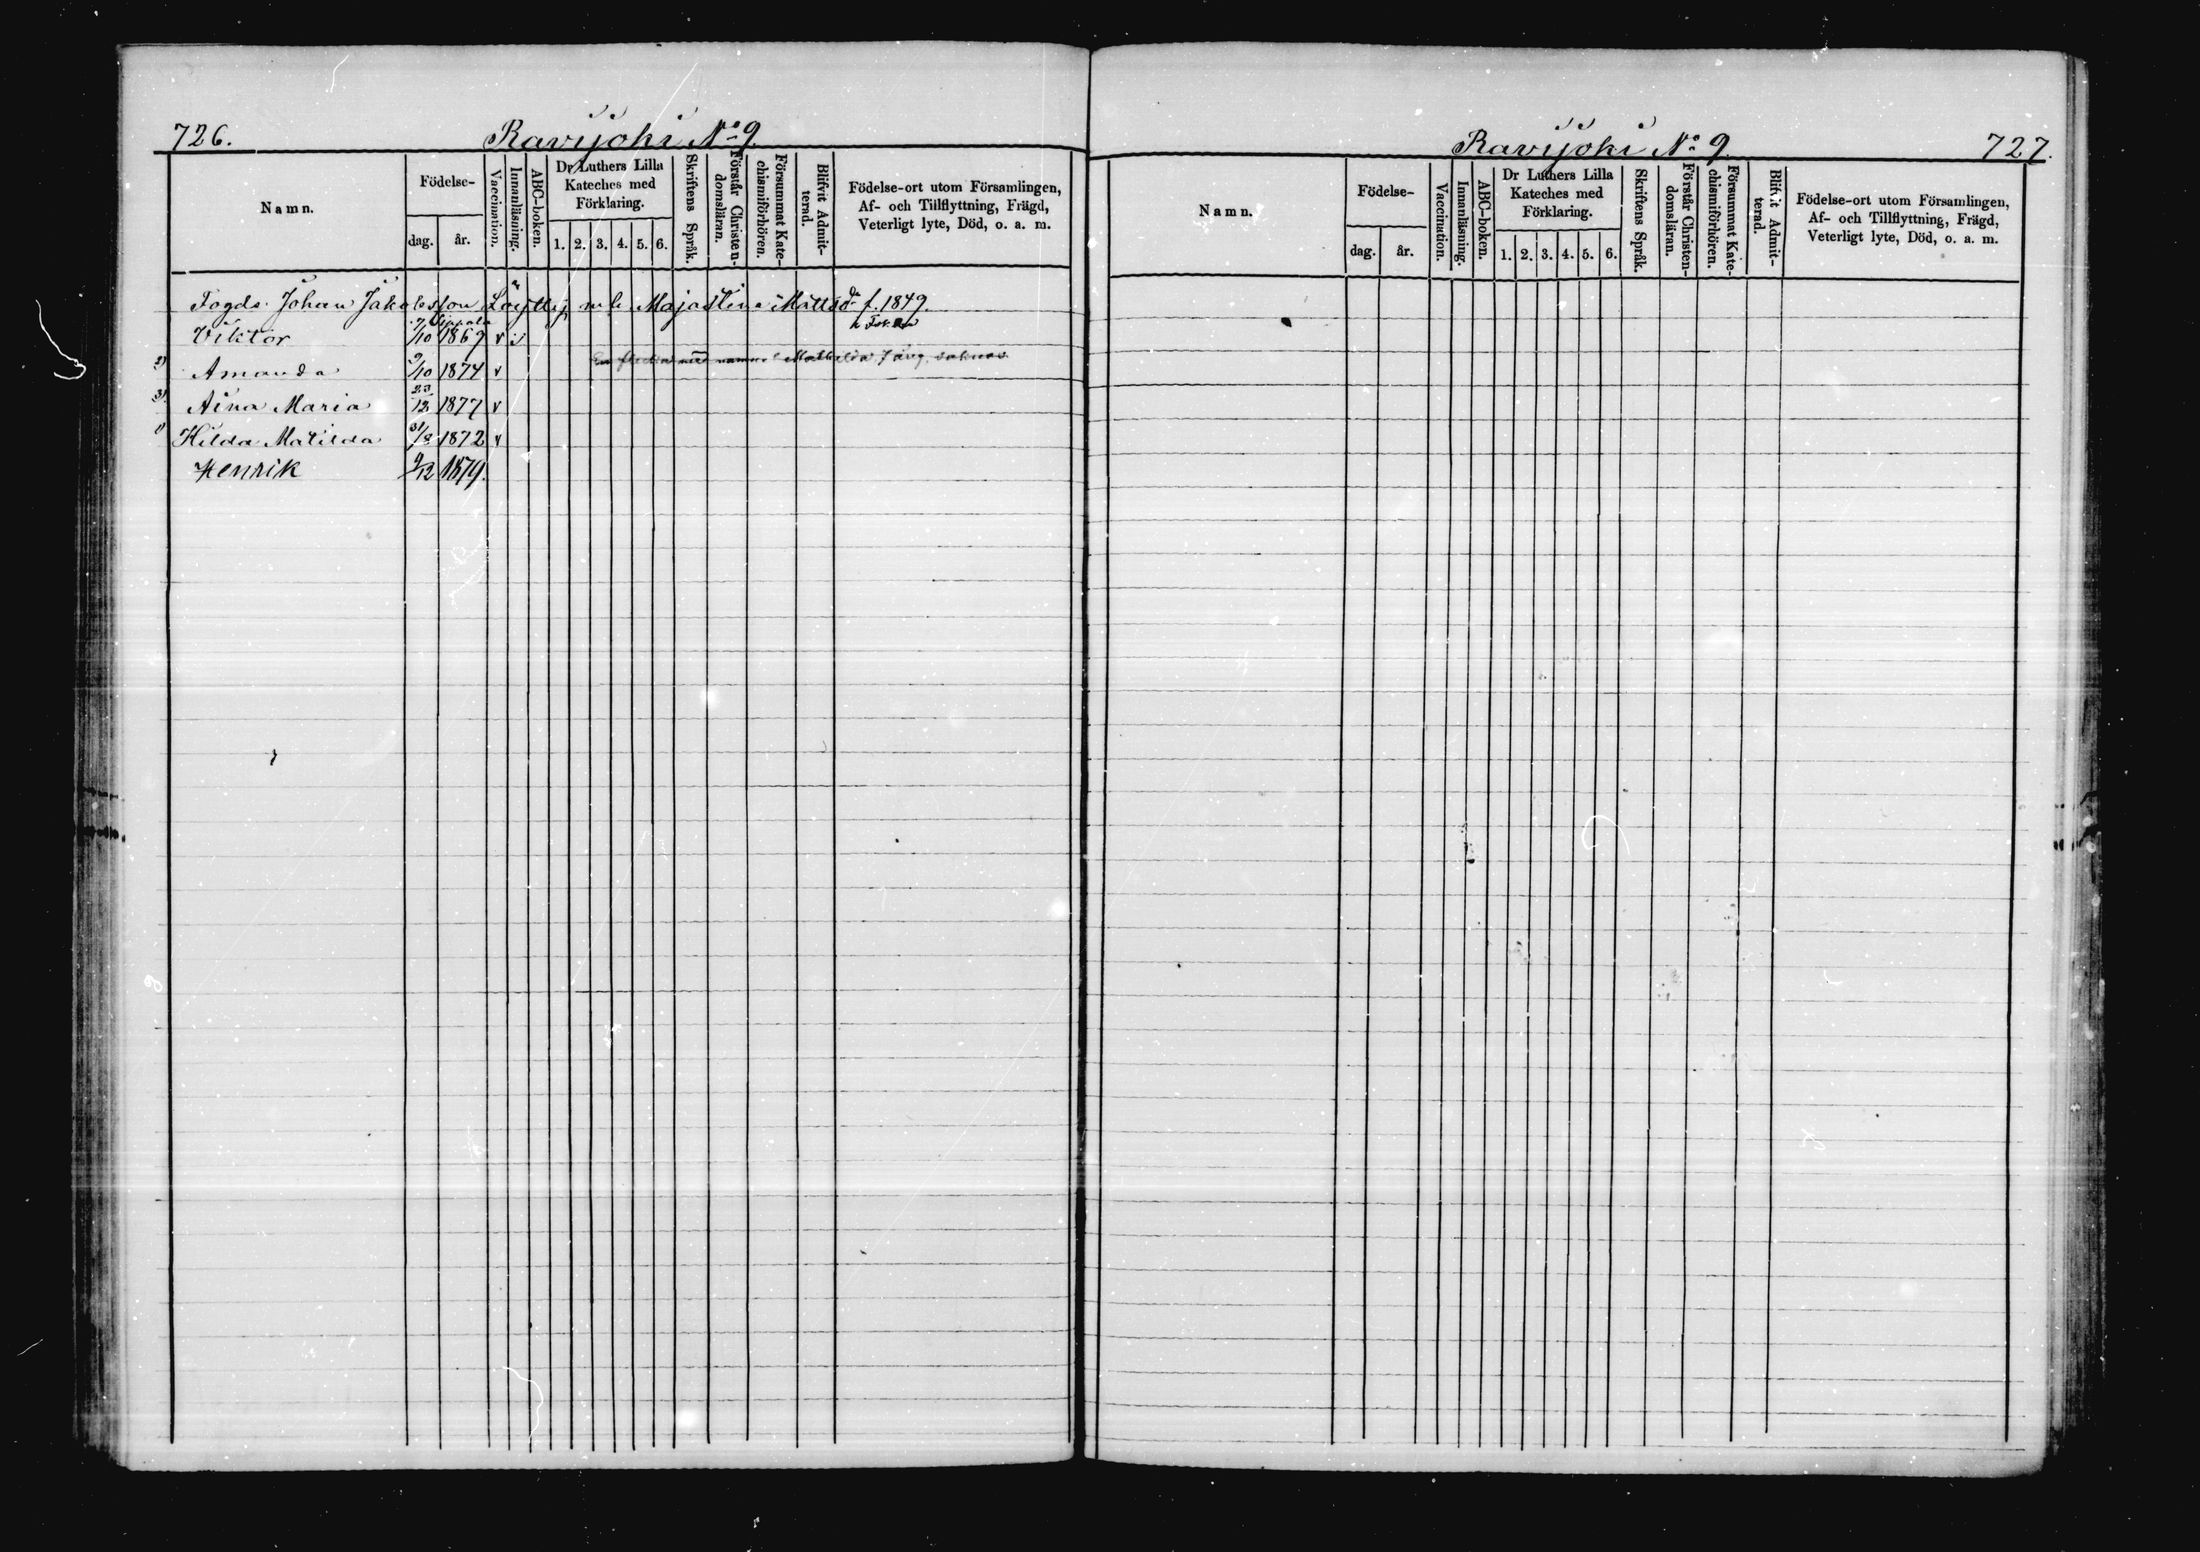 726. Ravijoki No 9.
Namn. Födelse- dag. år. Vaccination. Innanläsning. ABC-boken. Dr Luthers Lilla Kateches med Förklaring. 1. 2. 3. 4. 5. 6. Skriftens Språk. Förstår Christen-domsläran. Försummat Kate-chismiförhören. Blifvit Admit-terad. Födelse-ort utom Församlingen, Af- och Tillflyttning, Frägd, Veterligt lyte, Död, o. a. m.
Johan Jakobsson m h. Maja Stina Mattsdr f. 1849.
Sippola
Viktor 7/10 1869 v
En flicka med namnet Mathilda 7 årig, saknas
2) Amanda 9/10 1874 v
3) Aina Maria 23/12 1877 v
1) Hilda Matilda 31/8 1872 v
Henrik 9/12 1879.
Ravijoki No 9. 727.
Namn. Födelse- dag. år. Vaccination. Innanläsning. ABC-boken. Dr Luthers Lilla Kateches med Förklaring. 1. 2. 3. 4. 5. 6. Skriftens Språk. Förstår Christen-domsläran. Försummat Kate-chismiförhören. Blifvit Admit-terad. Födelse-ort utom Församlingen, Af- och Tillflyttning, Frägd, Veterligt lyte, Död, o. a. m.